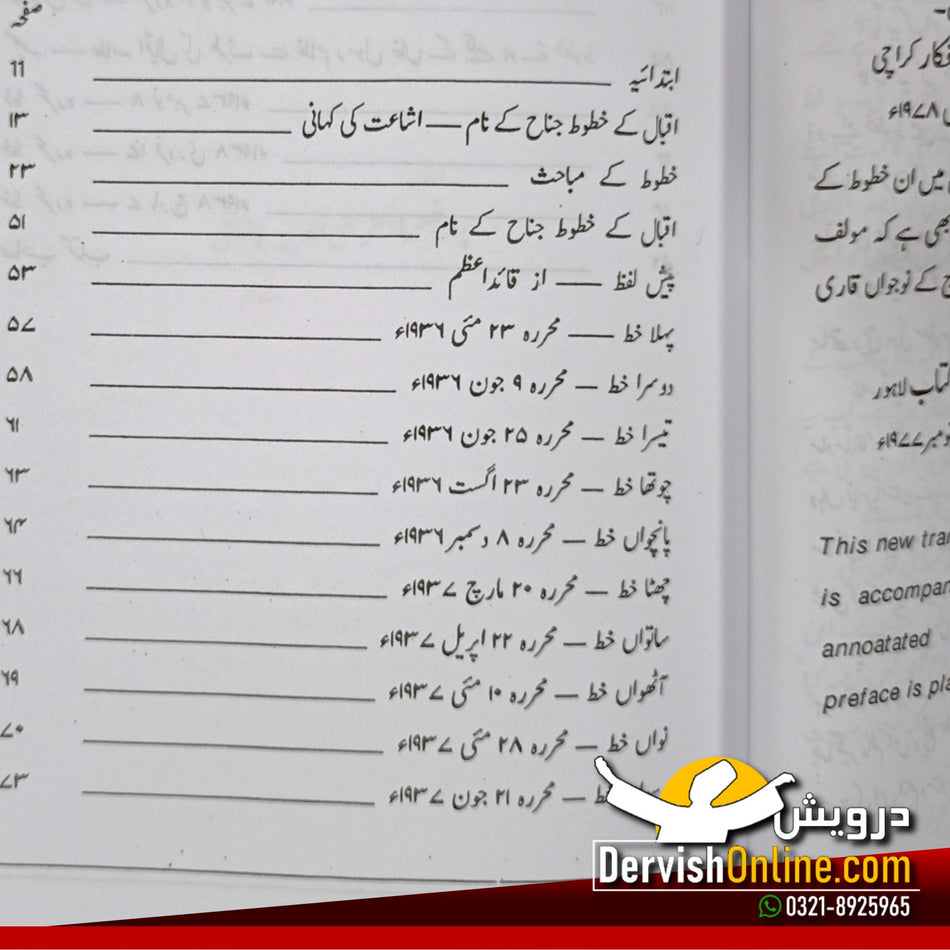 صفحہ
ابتدائیہ 11
اقبال کے خطوط جناح کے نام — اشاعت کی کہانی ۱۳
خطوط کے مباحث ۲۳
اقبال کے خطوط جناح کے نام ۵۱
پیش لفظ — از قائداعظم ۵۳
پہلا خط — محررہ ۲۳ مئی ۱۹۳۶ء ۵۷
دوسرا خط — محررہ ۹ جون ۱۹۳۶ء ۵۸
تیسرا خط — محررہ ۲۵ جون ۱۹۳۶ء ۶۱
چوتھا خط — محررہ ۲۳ اگست ۱۹۳۶ء ۶۳
پانچواں خط — محررہ ۸ دسمبر ۱۹۳۶ء ۶۴
چھٹا خط — محررہ ۲۰ مارچ ۱۹۳۷ء ۶۶
ساتواں خط — محررہ ۲۲ اپریل ۱۹۳۷ء ۶۸
آٹھواں خط — محررہ ۱۰ مئی ۱۹۳۷ء ۶۹
نواں خط — محررہ ۲۸ مئی ۱۹۳۷ء ۷۰
— محررہ ۲۱ جون ۱۹۳۷ء ۷۳
کراچی
۱۹۷۸ء
میں ان خطوط کے
بھی ہے کہ مولف
کے نوجواں قاری
لاہور
۱۹۷۷ء
This new
is
annoatated
preface is
درویش
DervishOnline.com
0321-8925965